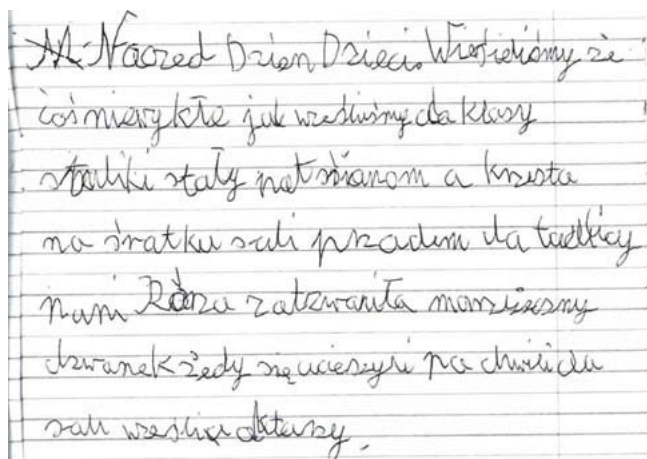 Naozed Dzien Dzieci. Wiefieliśmy że
coś niewykłe jak wreśliśmy do klasy
staliki stały pot ścianom a krzesta
na śratku sali przadem da tadlicy
pani Róża zatzwaniła
dzwanek żedy się ucieszyli pa chwili da
sali weśliki aktarzy.